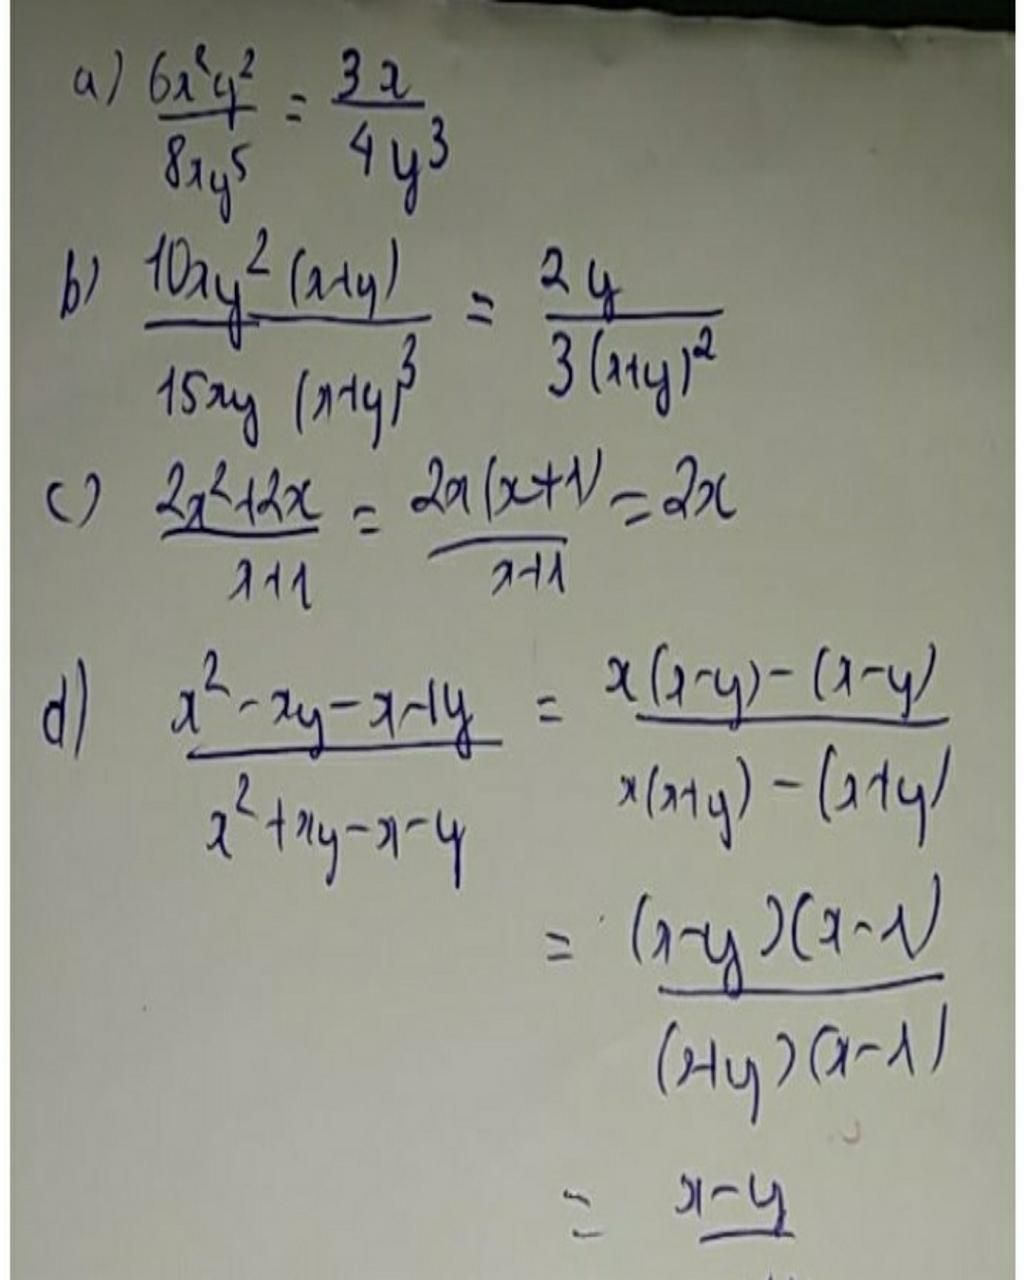 a) 6x²y²/8xy⁵ = 3x/4y³
b) 10xy²(x+y)/15xy(x+y)³ = 2y/3(x+y)²
c) 2x²+2x/x+1 = 2x(x+1)/x+1 = 2x
d) x²-xy-x+y/x²+xy-x-y = x(x-y)-(x-y)/x(x+y)-(x+y)
= (x-y)(x-1)/(x+y)(x-1)
= x-y